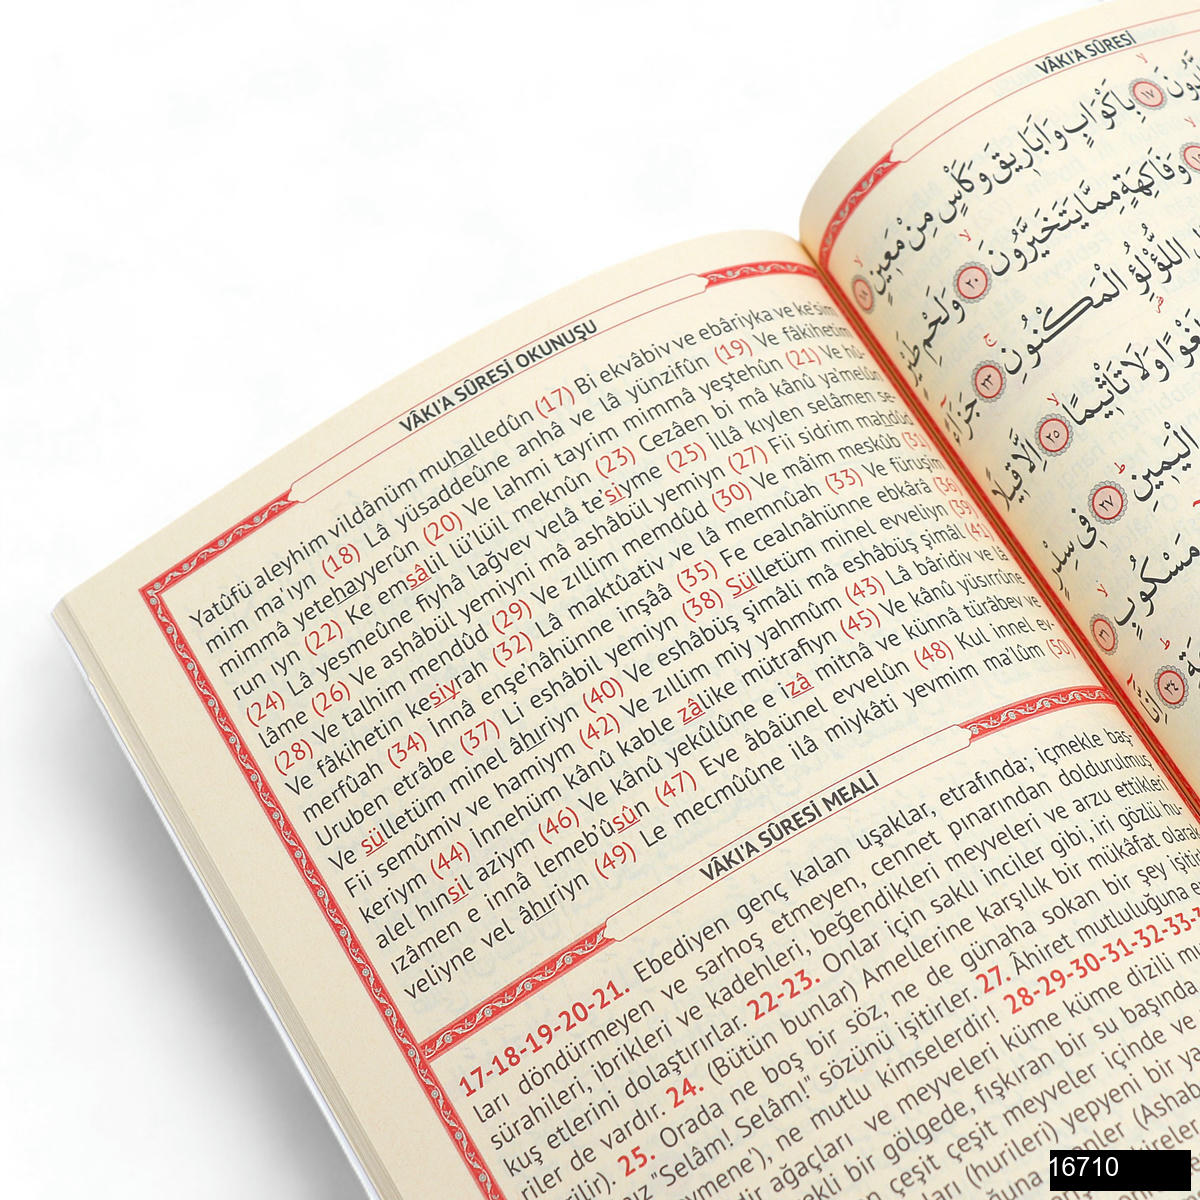 VÂKI'A SÛRESİ OKUNUŞU
Yatûfü aleyhim vildânüm muhalledûn (17) Bi ekvâbiv ve ebâriyka ve ke'sim
mim ma'ıyn (18) Lâ yüsaddeûne anhâ ve lâ yünzifûn (19) Ve fâkihetim
mimmâ yetehayyerûn (20) Ve lahmi tayrim mimmâ yeştehûn (21) Ve hû-
run ıyn (22) Ke emsâlil lü'lüil meknûn (23) Cezâen bi mâ kânû ya'melûn
(24) Lâ yesmeûne fiyhâ lağvev velâ te'siyme (25) İllâ kıylen selâmen se-
lâme (26) Ve ashâbül yemiyni mâ ashâbül yemiyn (27) Fii sidrim mahdûd
(28) Ve talhim mendûd (29) Ve zıllim memdûd (30) Ve mâim meskûb (31)
Ve fâkihetin kesiyrah (32) Lâ maktûativ ve lâ memnûah (33) Ve furuşim
merfûah (34) İnnâ enşe'nâhünne inşââ (35) Fe cealnâhünne ebkârâ (36)
Uruben etrâbe (37) Li eshâbil yemiyn (38) Sülletüm minel evveliyn (39)
Ve sülletüm minel âhıriyn (40) Ve eshâbüş şimâli mâ eshâbüş şimâl (41)
Fii semûmiv ve hamiym (42) Ve zıllim miy yahmûm (43) Lâ bâridiv ve lâ
keriym (44) İnnehüm kânû kable zâlike mütrafiyn (45) Ve kânû yüsırrûne
alel hınsil aziym (46) Ve kânû yekûlûne e izâ mitnâ ve künnâ türâbev ve
ızâmen e innâ lemeb'ûsûn (47) Eve âbâünel evvelûn (48) Kul innel ev-
veliyne vel âhıriyn (49) Le mecmûûne ilâ miykâti yevmim ma'lûm (50)
VÂKI'A SÛRESİ MEALİ
17-18-19-20-21. Ebediyen genç kalan uşaklar, etrafında; içmekle baş-
ları döndürmeyen ve sarhoş etmeyen, cennet pınarından doldurulmuş
sürahileri, ibrikleri ve kadehleri, beğendikleri meyveleri ve arzu ettikleri
kuş etlerini dolaştırırlar. 22-23. Onlar için saklı inciler gibi, iri gözlü hu-
riler de vardır. 24. (Bütün bunlar) Amellerine karşılık bir mükâfat olarak
25. Orada ne boş bir söz, ne de günaha sokan bir şey işitir
"Selâm! Selâm!" sözünü işitirler. 27. Âhiret mutluluğuna
ne mutlu kimselerdir! 28-29-30-31-32-33-
ağaçları ve meyveleri küme küme dizili
bir gölgede, fışkıran bir su başında
çeşit çeşit meyveler içinde ve
(hurileri) yepyeni bir
(Ashab
VÂKI'A SÛRESİ
﴿١٧﴾ بِاَكْوَابٍ وَاَبَارِيقَ وَكَأْسٍ مِنْ مَعِينٍ ﴿١٨﴾
وَفَاكِهَةٍ مِمَّا يَتَخَيَّرُونَ ﴿٢٠﴾ وَلَحْمِ طَيْرٍ
اللُّؤْلُؤِ الْمَكْنُونِ ﴿٢٣﴾ جَزَاءً
وَلَا تَأْثِيمًا ﴿٢٥﴾ اِلَّا قِيلًا
الْيَمِينِ ﴿٢٧﴾ فِى سِدْرٍ
مَسْكُوبٍ ﴿٣١﴾
﴿٣٤﴾ اِنَّا
16710